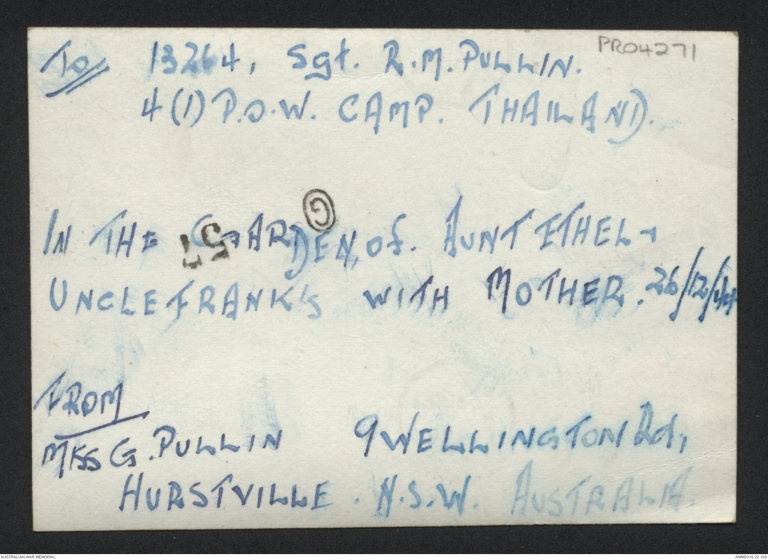 PRO4271
To 13264, Sgt. R.M. PULLIN.
4(1) P.O.W. CAMP. THAILAND.
G
57
IN THE GARDEN, of. AUNT ETHEL +
UNCLE FRANK'S WITH MOTHER. 26/12/44
FROM
MRS G. PULLIN 9 WELLINGTON Rd,
HURSTVILLE. N.S.W. AUSTRALIA.
AUSTRALIAN WAR MEMORIAL